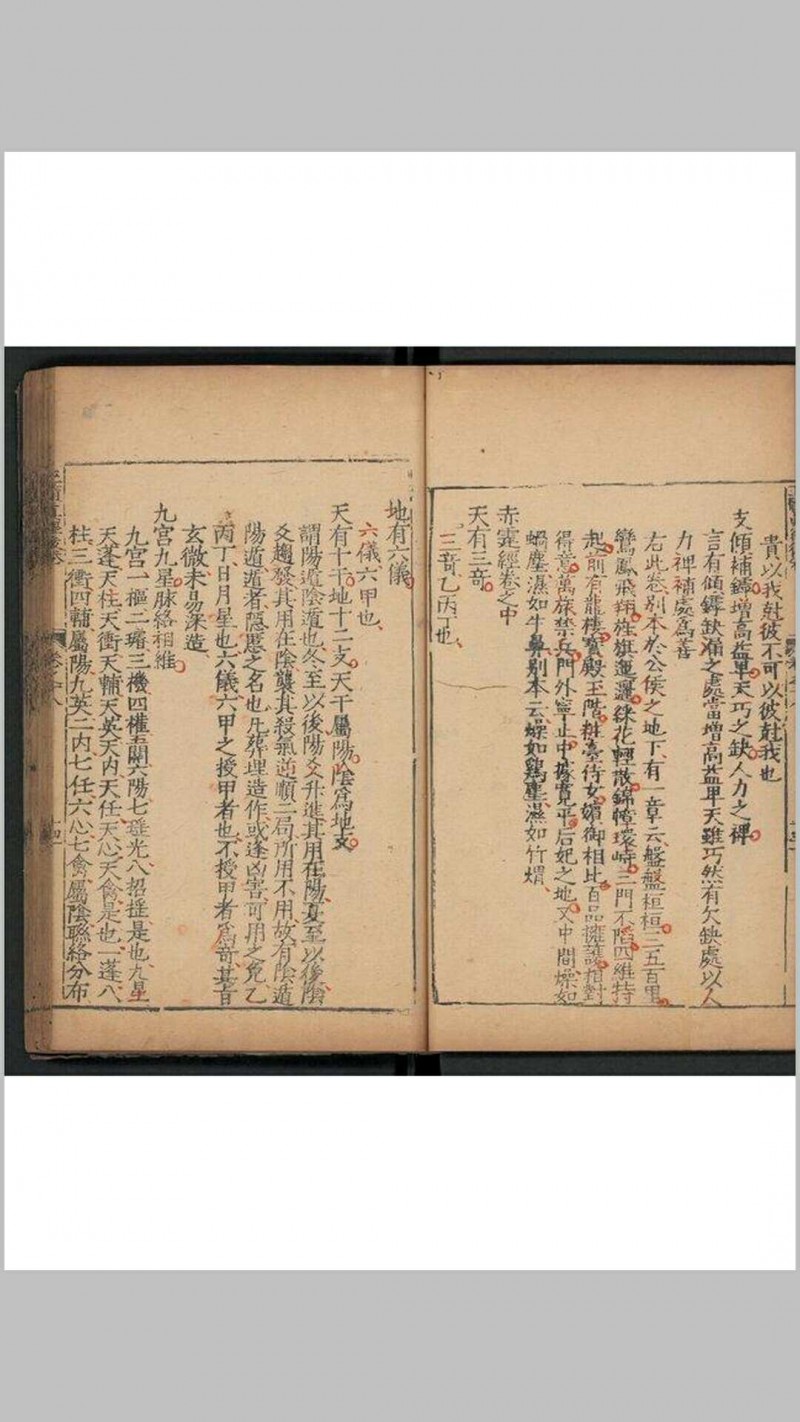 貴以我尅彼不可以彼尅我也
支傾補鏬增高益卑天巧之缺人力之裨
言有傾鏬缺漏之處當增高益卑天雖巧然有欠缺處以人
力裨補處爲善
右此卷別本於公侯之地下有一章云盤盤桓桓三五百里
鸞鳳飛翔旌旗邐邐綠花輕散錦幛環峙三門不陷四維特
起前有龍樓寶殿玉階粧臺侍女嬪御相比百品擁護相對
得意萬旅禁兵門外寧止中據寬平后妃之地又中間燥如
蝸塵濕如牛鼻別本云燥如鷄壅濕如竹㷄
赤霆經卷之中
天有三奇
三奇乙丙丁也
地有六儀
六儀六甲也
天有十干地十二支天干屬陽陰爲地支
謂陽遁陰遁也冬至以後陽爻升進其用在陽夏至以後陰
爻趨發其用在陰襲其殺氣逆順二局所用不用故有陰遁
陽遁遁者隱匿之名也凡葬埋造作或逢凶害可用之免乙
丙丁日月星也六儀六甲之授甲者也不授甲者爲奇其旨
玄微未易深造
九宮九星脉絡相維
九宮一樞二璿三機四權五闓六陽七瑤光八招摇是也九星
天蓬天柱天衝天輔天英天内天任天心天禽是也一蓬八
柱三衝四輔屬陽九英二内七任六心七禽屬陰聯絡分布